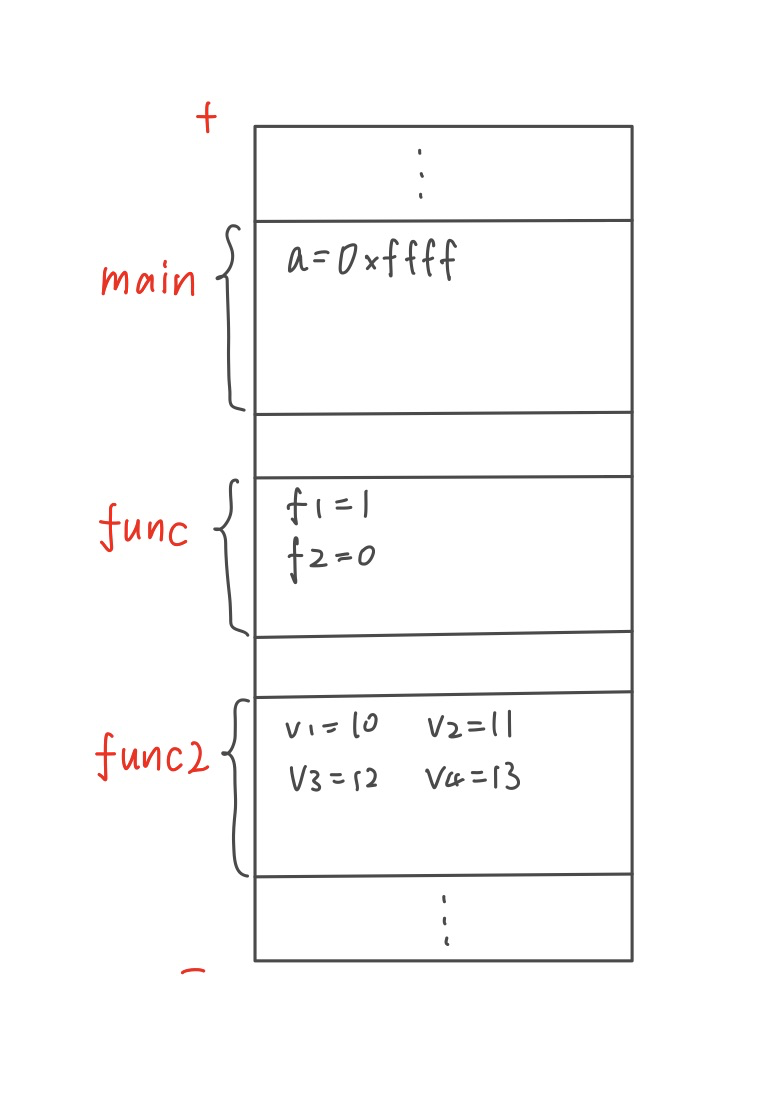 +
main
a=0xffff
func
f1=1
f2=0
func2
v1=10 v2=11
v3=12 v4=13
−